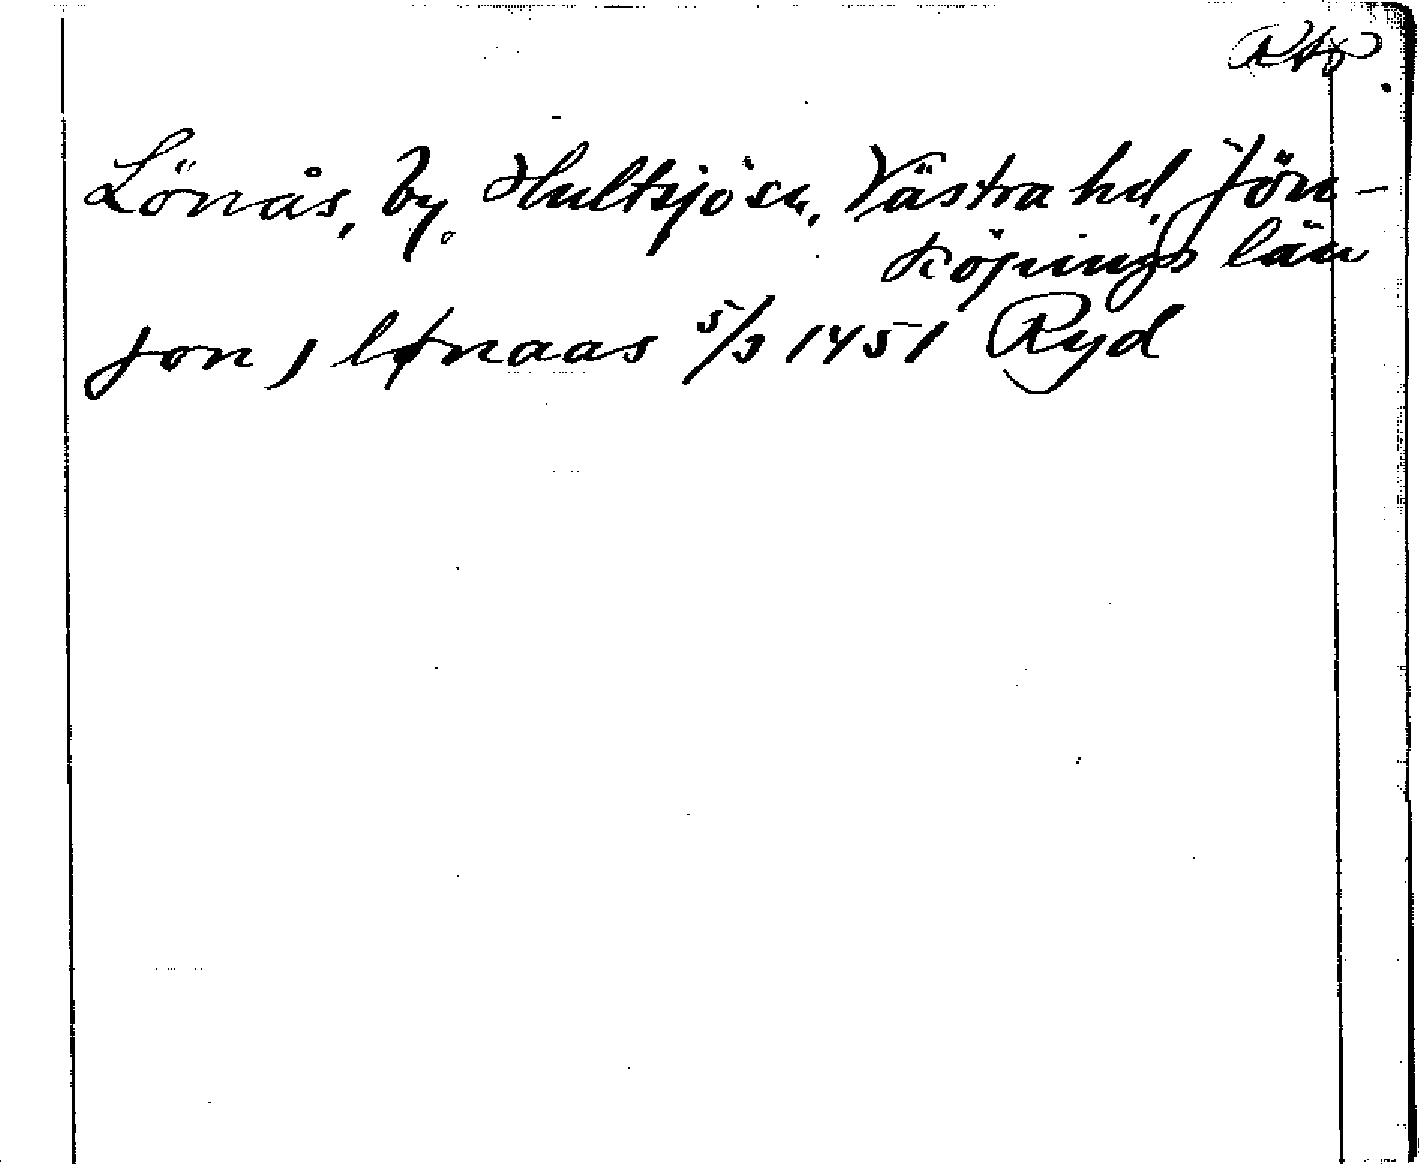 Lönås, by. Hultsjö sn, Västra hd, Jön-
köpings län
jon j lønaas 5/3 1451 Ryd